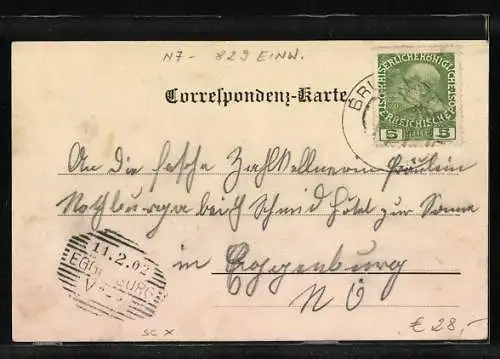 N7- 829 EINW.
Correspondenz-Karte
KAISERLICHE KÖNIGLICHE ÖSTERREICHISCHE
5 HELLER 5
BRU
An die fesche Zahlkellnerin Fräulein
Nothburga beim Schmid Hotel zur Sonne
in Eggenburg
N Ö
11.2.02
EGGENBURG
SC X
€ 28,-